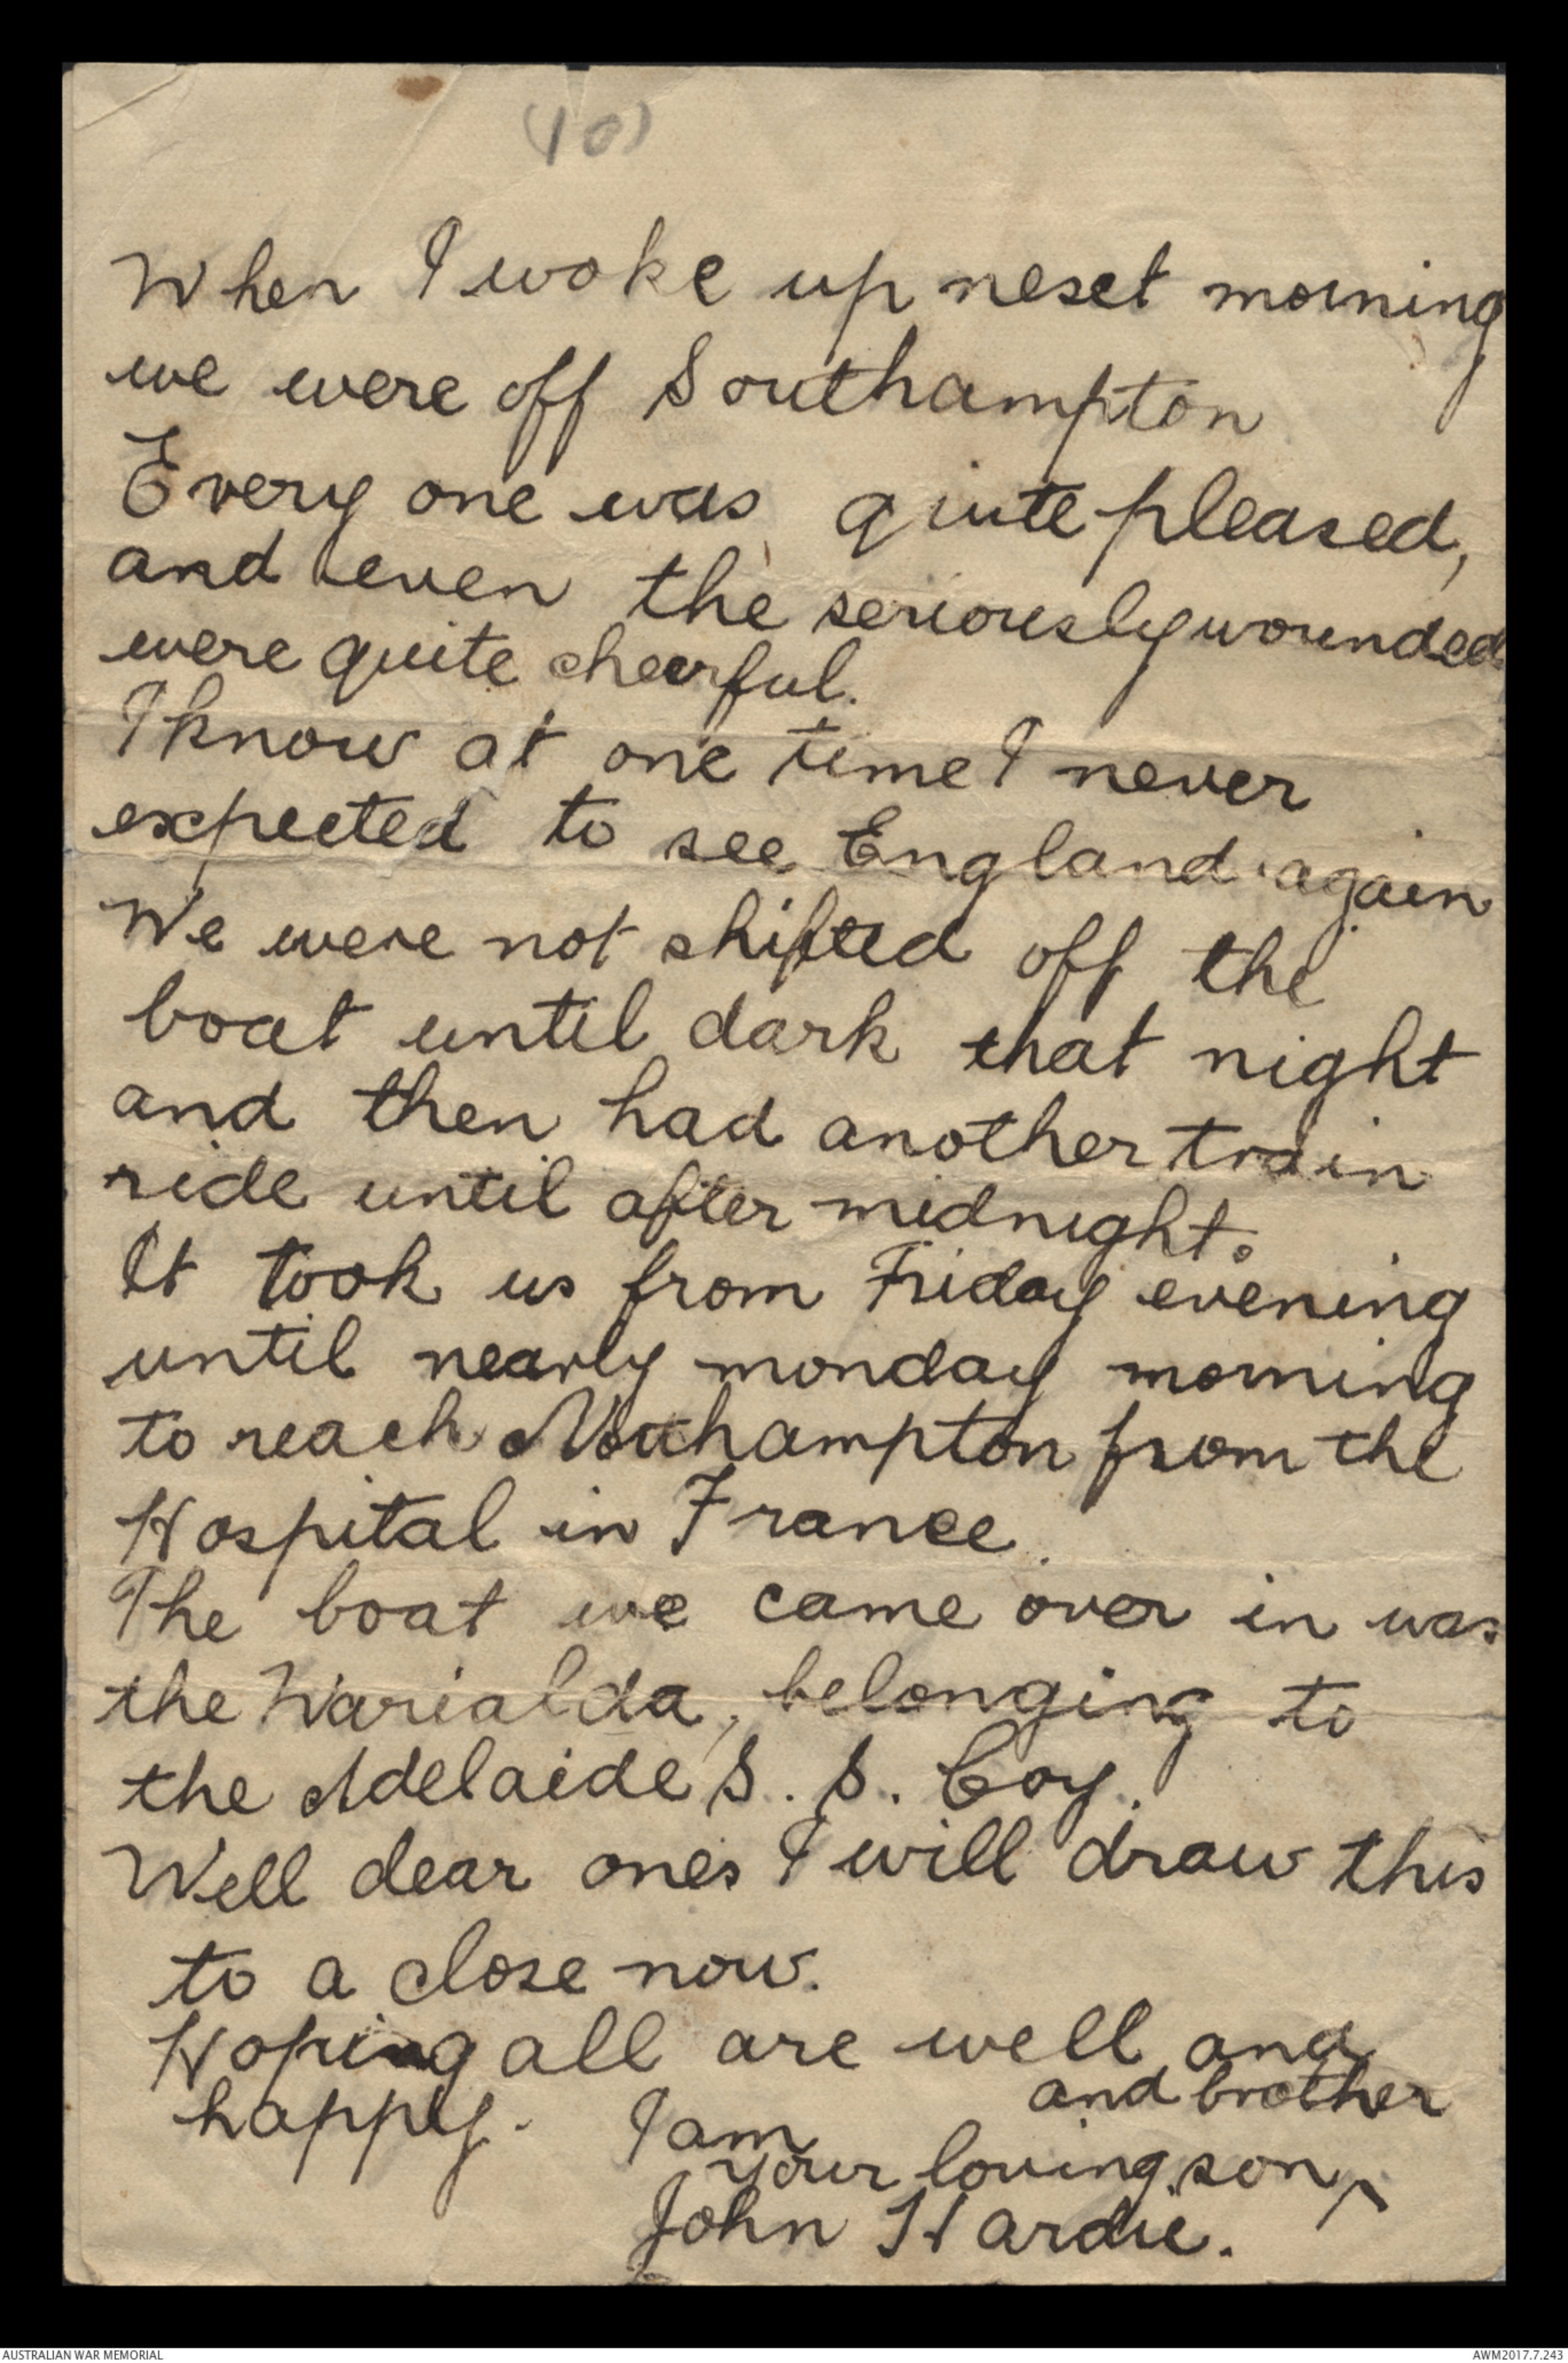 (10)
When I woke up next morning
we were off Southampton
Every one was quite pleased,
and even the seriously wounded
were quite cheerful.
I know at one time I never
expected to see England again
We were not shifted off the
boat until dark that night
and then had another train
ride until after midnight.
It took us from Friday evening
until nearly monday morning
to reach Northampton from the
Hospital in France.
The boat we came over in was
the Warialda, belonging to
the Adelaide S. S. Coy.
Well dear ones I will draw this
to a close now.
Hoping all are well and
happy. I am
and brother
your loving son ^
John Hardie.
AUSTRALIAN WAR MEMORIAL
AWM2017.7.243